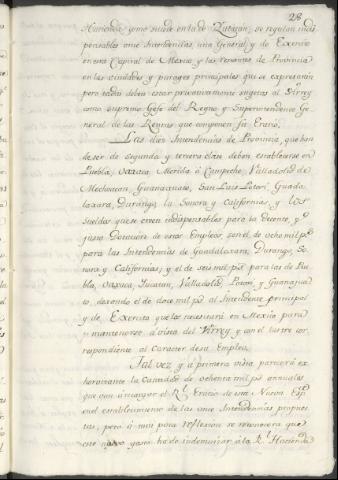 28
Hacienda como sucede en la de Yucatán; se regulan indis-
pensables once Intendencias, una General y de Exercito
en esta Capital de Mexico y las restantes de Provincia
en las ciudades y parages principales que se expresarán
pero todas deben estar privativamente sugetas al Virrey
como supremo Gefe del Reyno y Superintendente Ge-
neral de las Rentas que componen su Erario.
Las diez Intendencias de Provincia, que han
de ser de segunda y tercera clase deben establecerse en
Puebla, Oaxaca, Merida ó Campeche, Valladolid de
Mechoacan, Guanaxuato, San Luis Potosí, Guada-
laxara, Durango, la Sonora y Californias, y los
sueldos que se creen indispensables para la decente, y
justa Dotacion de estos Empleos, son el de ocho mil p.s
para las Intendencias de Guadalaxara, Durango, So-
nora y Californias; y el de seis mil p.s para las de Pue-
bla, Oaxaca, Yucatan, Valladolid, Potosi, y Guanajua-
to, dexando el de doce mil p.s al Intendente principal
y de Exercito que los necesitará en Mexico para
mantenerse á vista del Virrey, y con el lustre cor-
respondiente al caracter de su Empleo.
Tal vez y á primera vista parecerá ex-
horvitante la cantidad de ochenta mil p.s annuales
que van á recargar el R.l Erario de esta Nueva Esp.a
en el establecimiento de las once Intendencias propues-
tas, pero á mui poca reflexion se reconocera que
este nuevo gasto ha de indemnizar á la R.l Hacienda